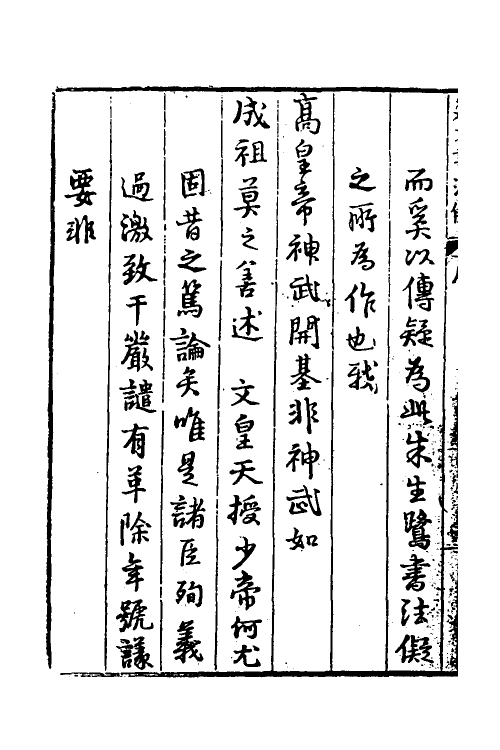 而奚以傳疑為此朱生鷺書法儗
之所為作也我
高皇帝神武開基非神武如
成祖莫之善述　文皇天授少帝何尤
固昔之篤論矣唯是諸臣殉義
過激致干嚴譴有革除年號議
要非